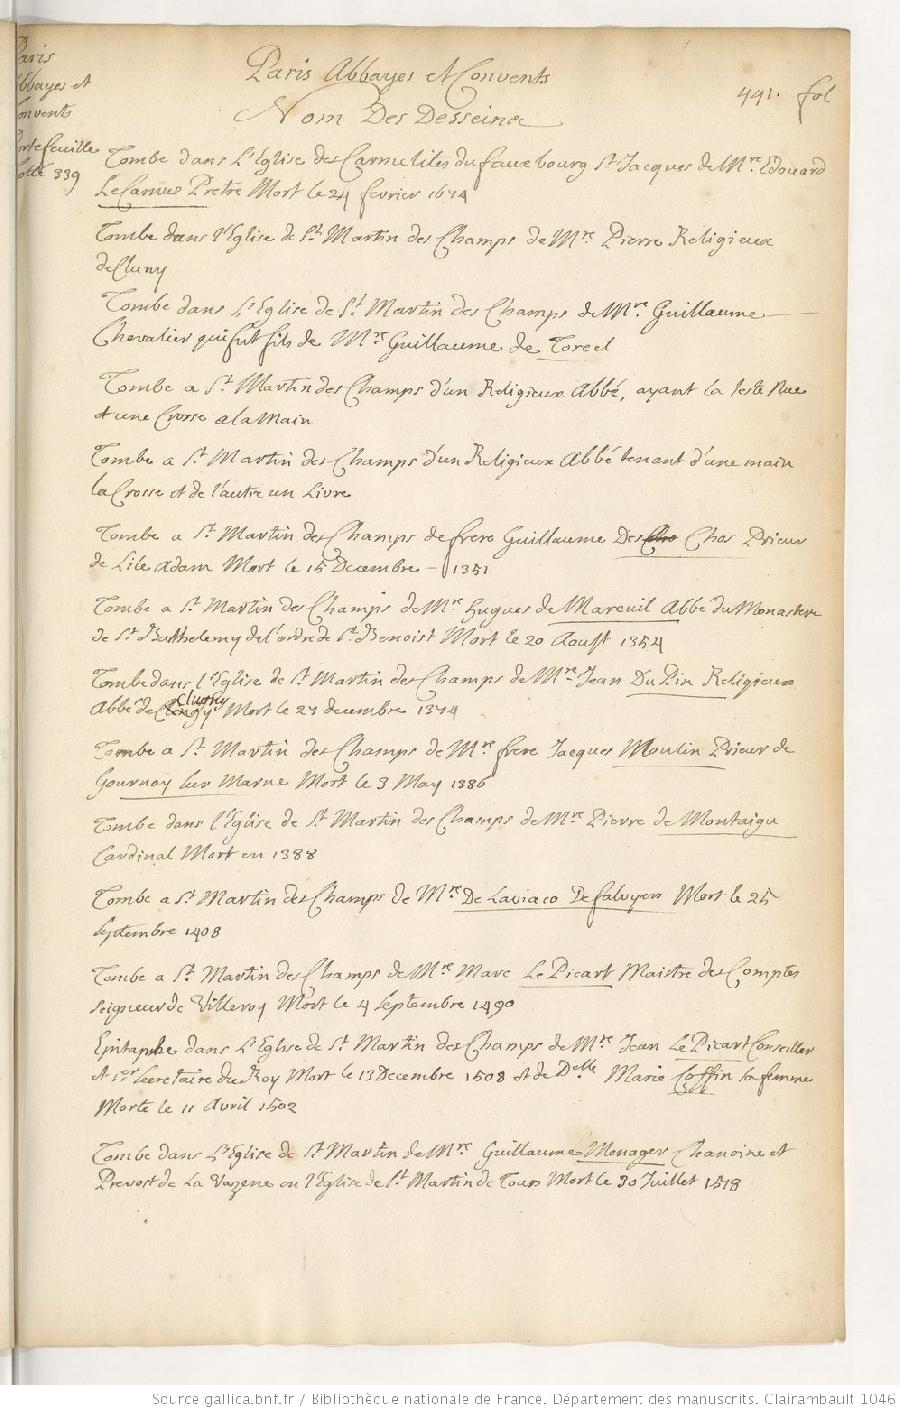 Paris
Abbayes et
Convents
Portefeuille
cotté 339
Paris Abbayes et Convents
441. fol
Nom Des Desseins
Tombe dans L'Eglise des Carmelites du faux bourg St. Jacques de Mre. Edouard
Le Camus Pretre Mort le 24 fevrier 1674
Tombe dans l'Eglise de St. Martin des Champs de Mre Pierre Religieux
de Cluny
Tombe dans L'Eglise de St Martin des Champs de Mre. Guillaume
Chevalier qui fut fils de Mre Guillaume de Torcel
Tombe a St. Martin des Champs d'un Religieux Abbé, ayant la teste Nue
et une Crosse a la Main
Tombe a St. Martin des Champs d'un Religieux Abbé tenant d'une main
la Crosse et de l'autre un Livre
Tombe a St. Martin des Champs de frere Guillaume Des Chas Prieur
de Lile Adam Mort le 15 Decembre - 1351
Tombe a St. Martin des Champs de Mre Hugues de Mareuil Abbé du Monastere
de St. Barthelemy de l'ordre de St. Benoist Mort le 20 Aoust 1354
Tombe dans l'Eglise de St Martin des Champs de Mre Jean Du Pin Religieux
Abbé de Clugny Mort le 23 decembre 1374
Tombe a St. Martin des Champs de Mre frere Jacques Moulin Prieur de
Gournay sur Marne Mort le 3 May 1386
Tombe dans l'Eglise de St Martin des Champs de Mre Pierre de Montaigu
Cardinal Mort en 1388
Tombe a St. Martin des Champs de Mre De Laviaco De falvyers Mort le 25
Septembre 1408
Tombe a St. Martin des Champs de Mre Marc Le Picart Maistre des Comptes
Seigneur de Villeroy Mort le 4 Septembre 1490
Epitaphe dans L'Eglise de St. Martin des Champs de Mre Jean Le Picart Conseiller
et 1er Secretaire du Roy Mort le 13 Decembre 1508 et de Delle Marie Coffin sa femme
Morte le 11 Avril 1502
Tombe dans L'Eglise de St Martin de Mre Guillaume Menager Chanoine et
Prevost de La Vazene en l'Eglise de St. Martin de Tours Mort le 30 Juillet 1518
Source gallica.bnf.fr / Bibliothèque nationale de France. Département des manuscrits. Clairambault 1046